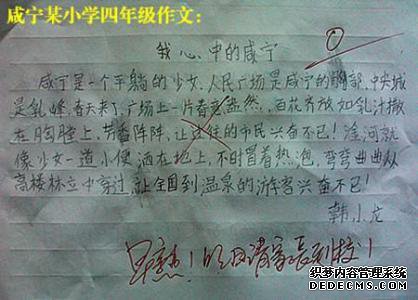 咸宁某小学四年级作文：
0
我心中的咸宁
咸宁是一个平躺的少女，人民广场是咸宁的胸部，中央城
是乳峰，春天来了，广场上一片春意盎然，百花齐放如乳汁撒
在胸膛上，芳香阵阵，让过往的市民兴奋不已！淦河就
像少女一道小便洒在地上，不时冒着热泡，弯弯曲曲从
高楼林立中穿过，让全国到温泉的游客兴奋不已！
韩小龙
明日请家长到校！
织梦内容管理系统
DEDECMS.COM